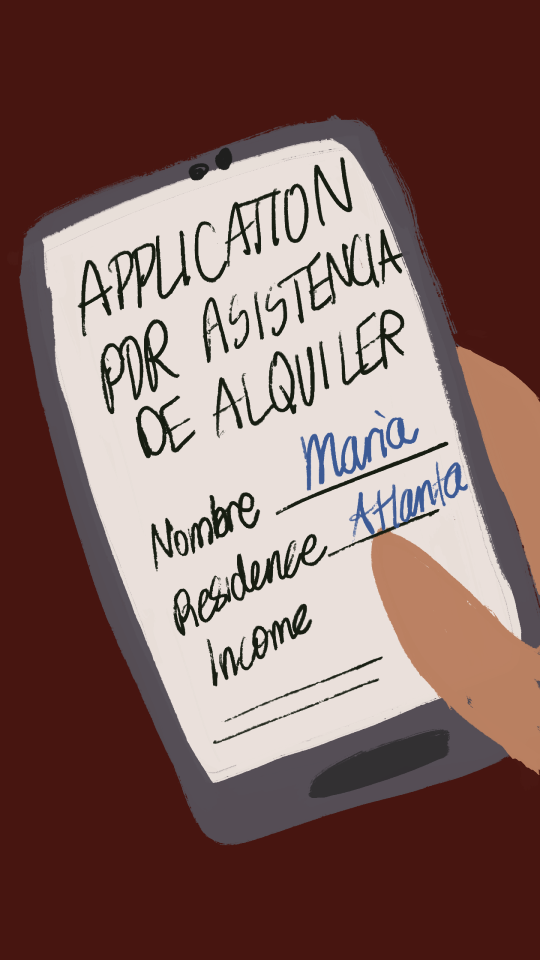 APPLICATION
POR ASISTENCIA
DE ALQUILER
Nombre Maria
Residence Atlanta
Income